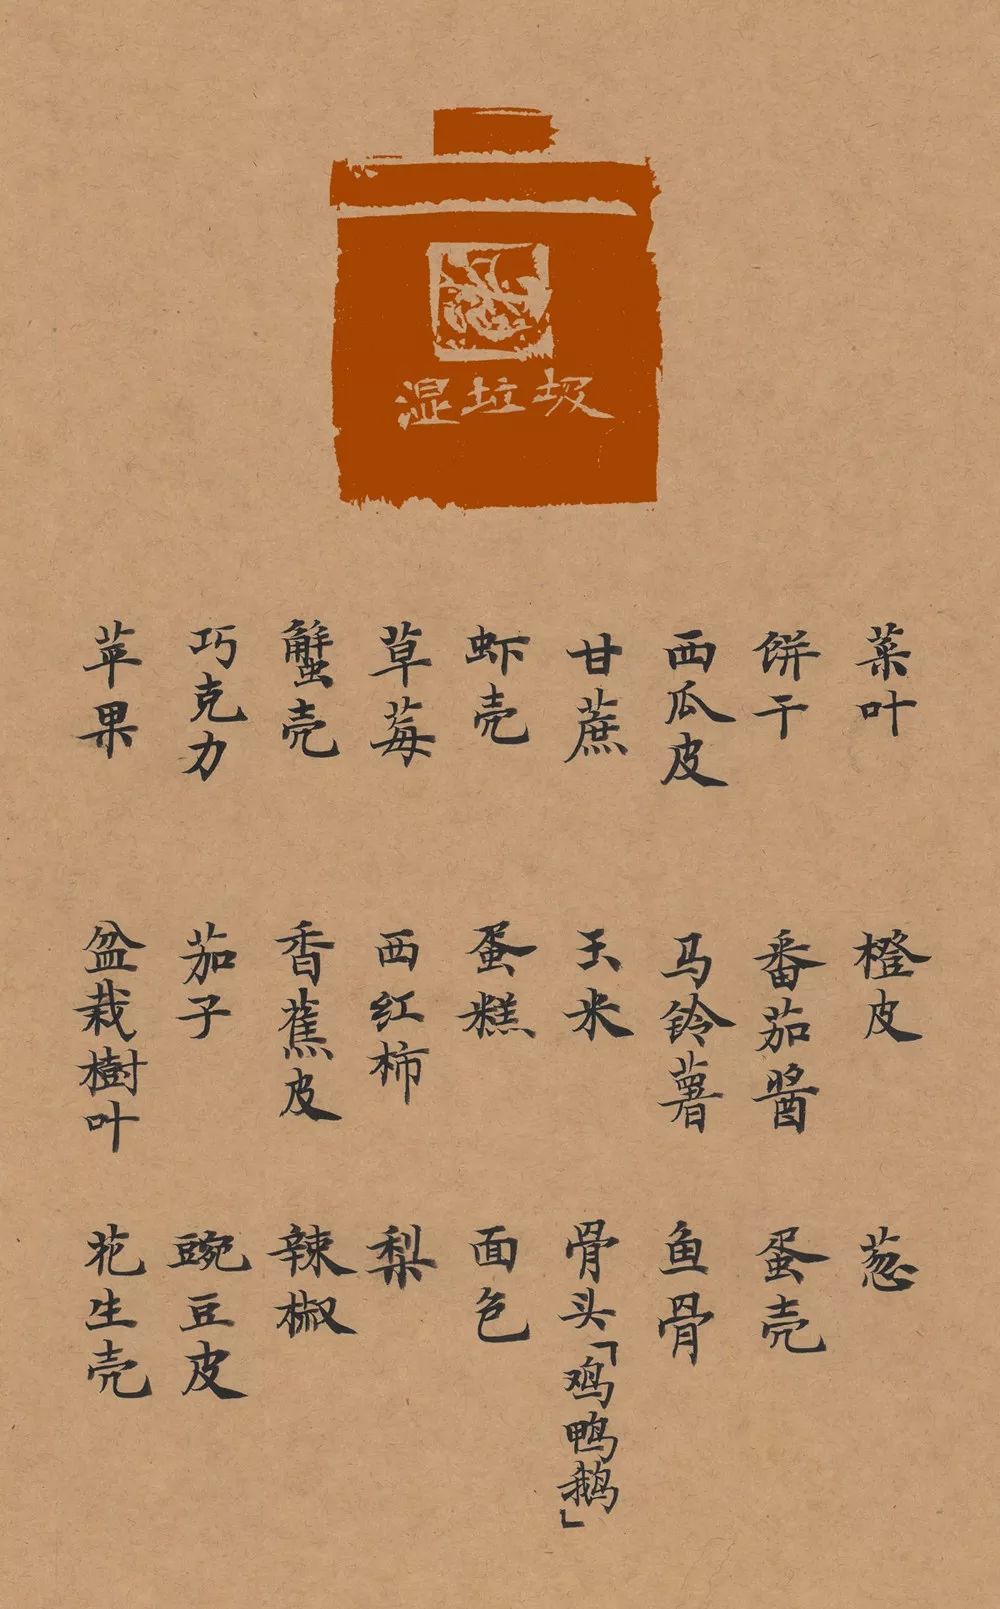 湿垃圾
菜叶
饼干
西瓜皮
甘蔗
虾壳
草莓
蟹壳
巧克力
苹果
橙皮
番茄酱
马铃薯
玉米
蛋糕
西红柿
香蕉皮
茄子
盆栽樹叶
葱
蛋壳
鱼骨
骨头「鸡鸭鹅」
面色
梨
辣椒
豌豆皮
花生壳